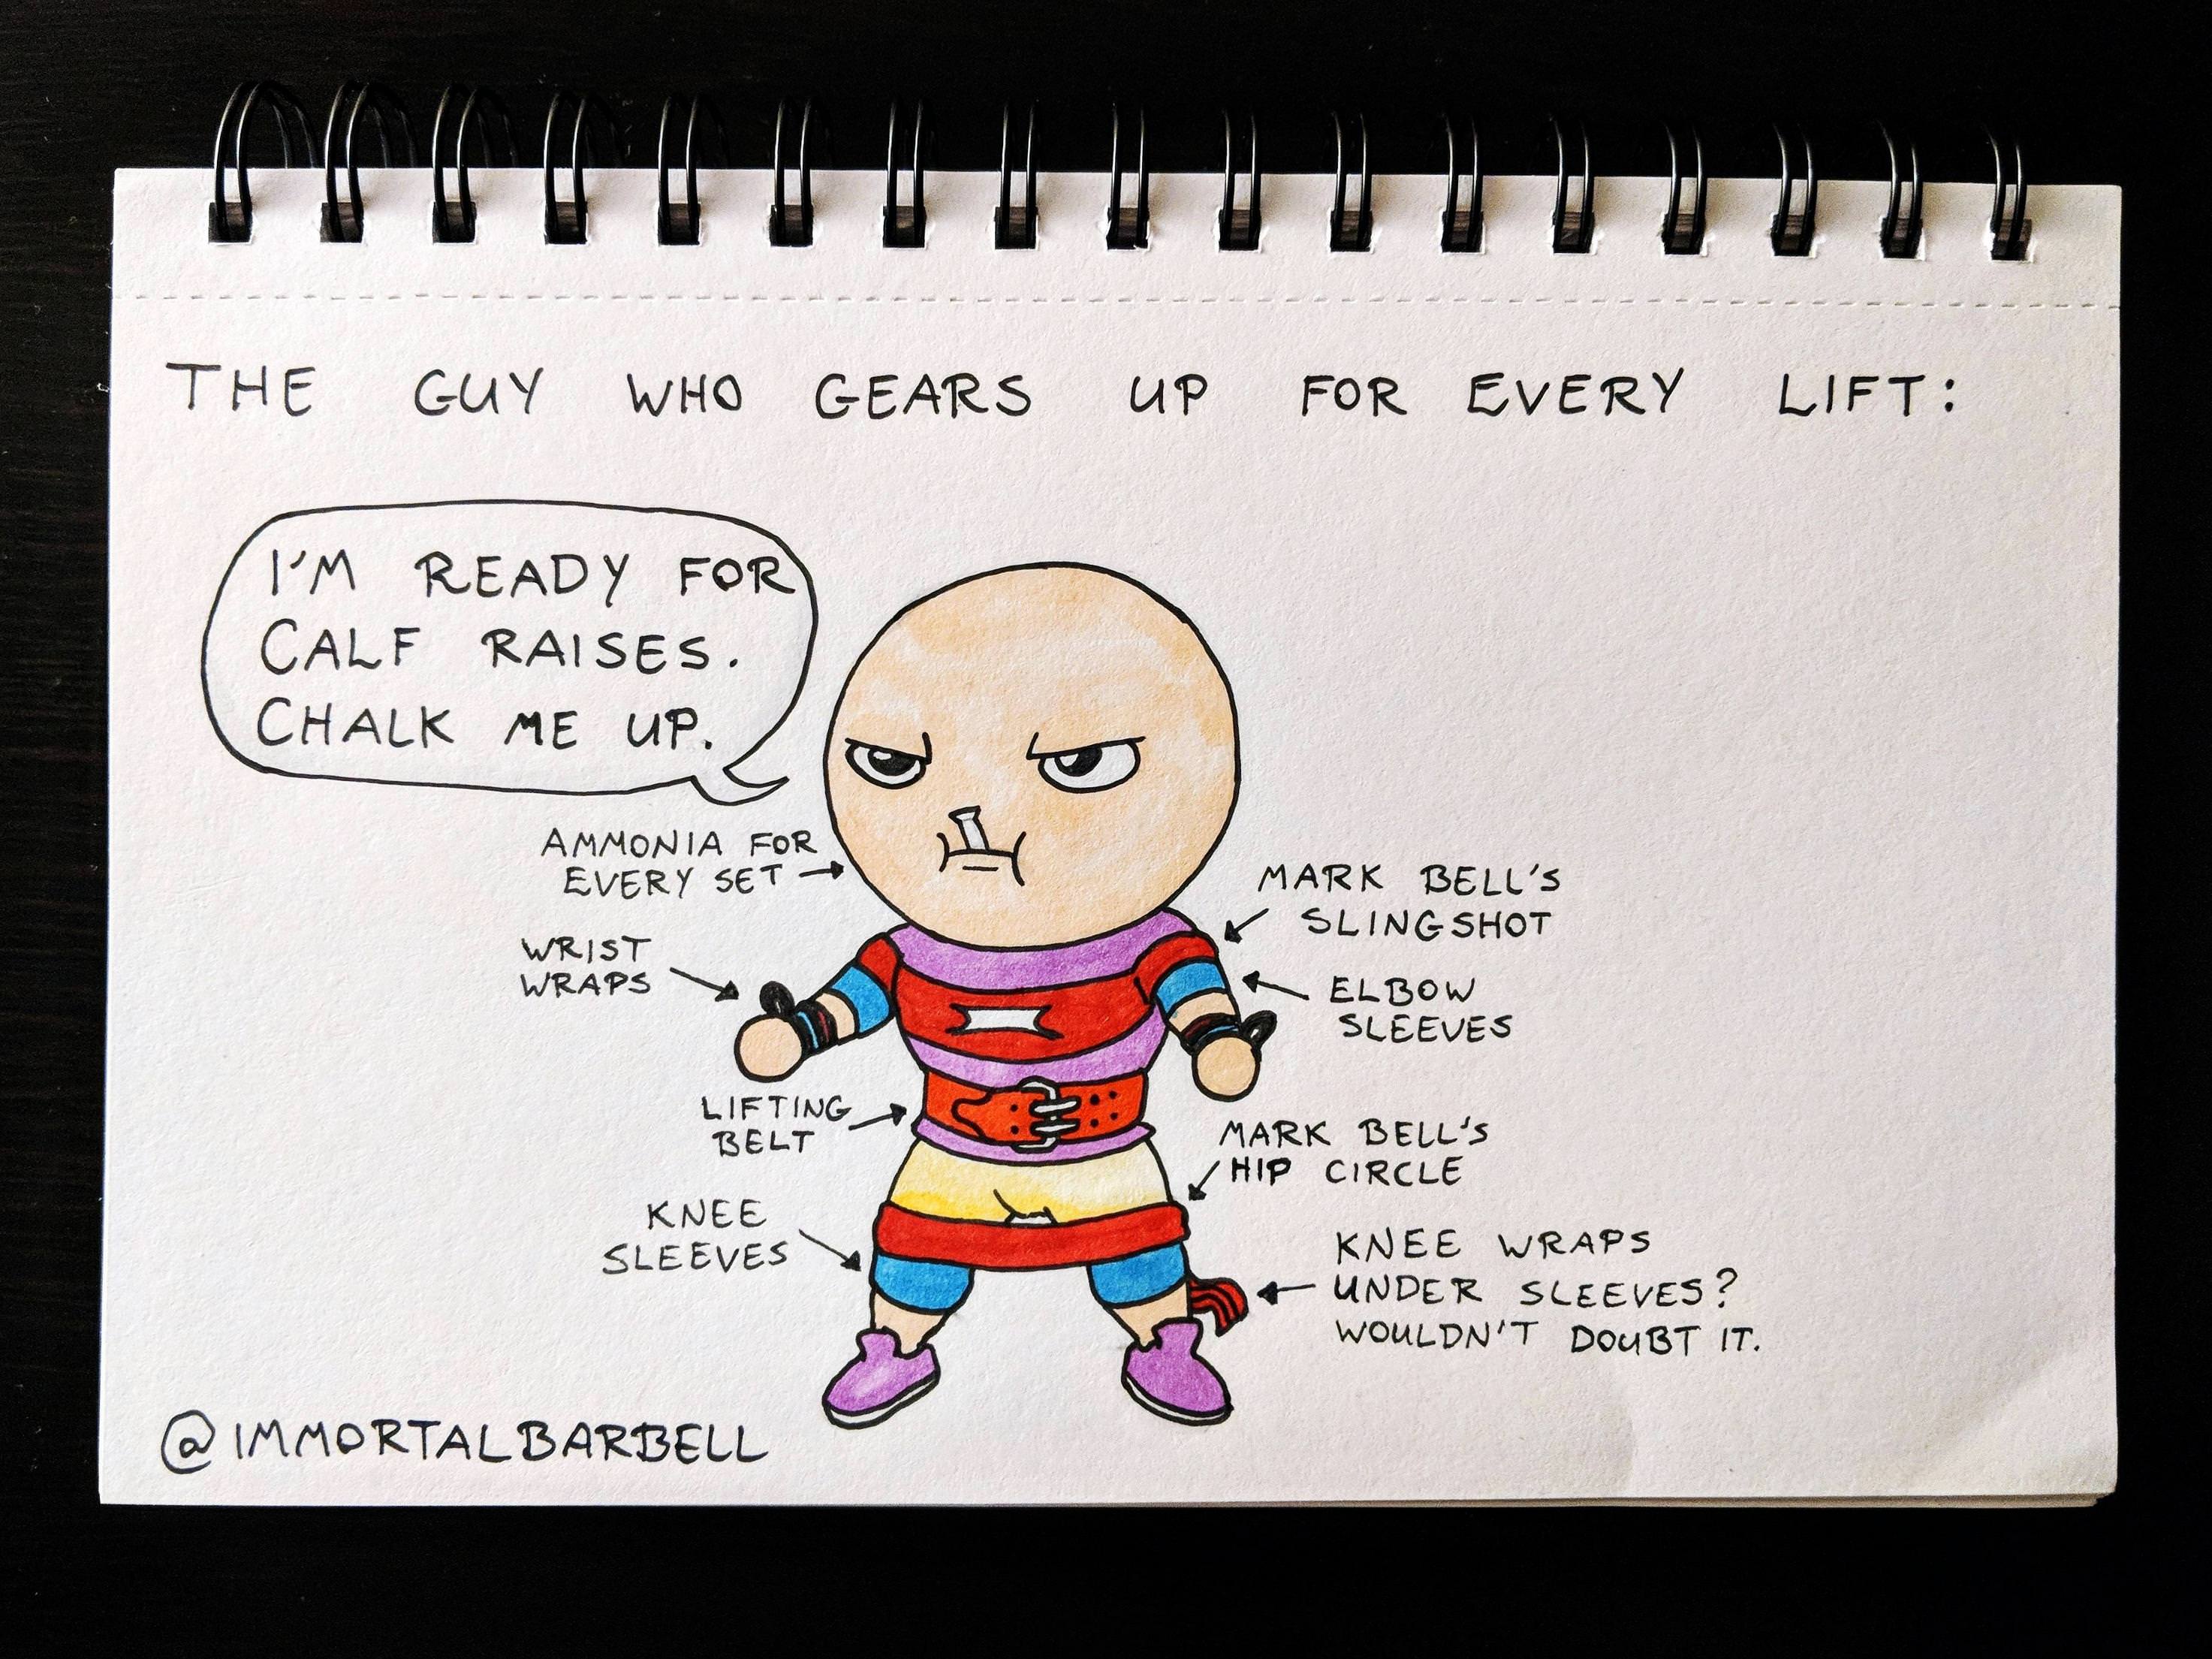 THE GUY WHO GEARS UP FOR EVERY LIFT:
I'M READY FOR
CALF RAISES.
CHALK ME UP.
AMMONIA FOR
EVERY SET
WRIST
WRAPS
LIFTING
BELT
KNEE
SLEEVES
MARK BELL'S
SLINGSHOT
ELBOW
SLEEVES
MARK BELL'S
HIP CIRCLE
KNEE WRAPS
UNDER SLEEVES?
WOULDN'T DOUBT IT.
@IMMORTALBARBELL